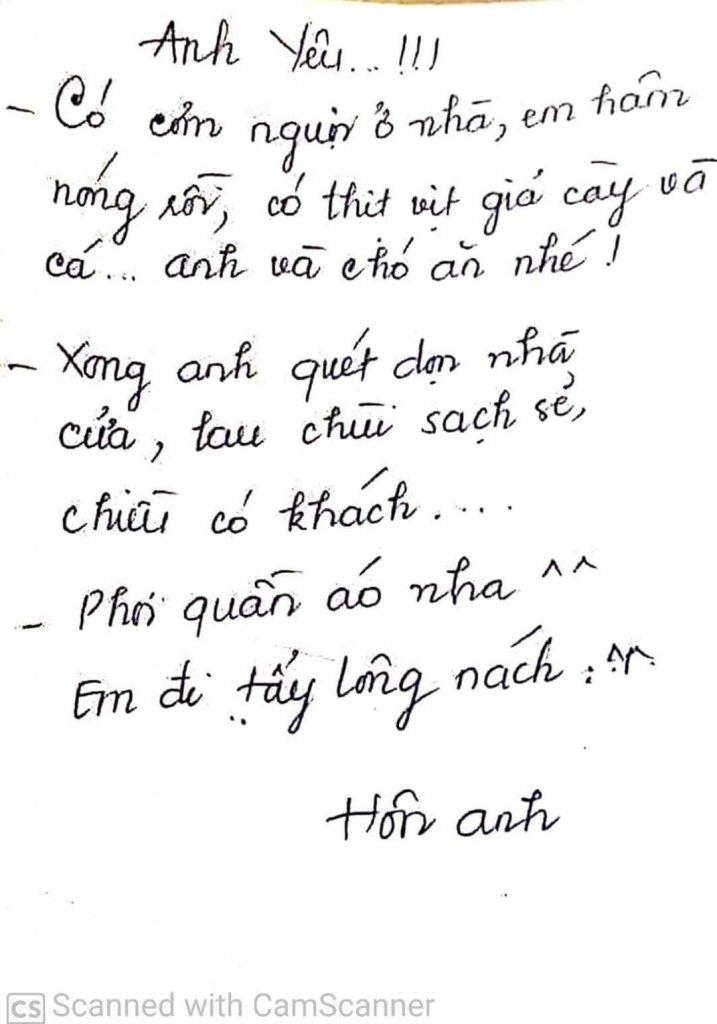 Anh Yêu...!!!
- Có cơm nguội ở nhà, em hâm
nóng rồi, có thịt vịt giả cầy và
cá... anh và chó ăn nhé!
- Xong anh quét dọn nhà
cửa, lau chùi sạch sẽ,
chiều có khách....
- Phơi quần áo nha ^^
Em đi tẩy lông nách :^^.
Hôn anh
CS Scanned with CamScanner